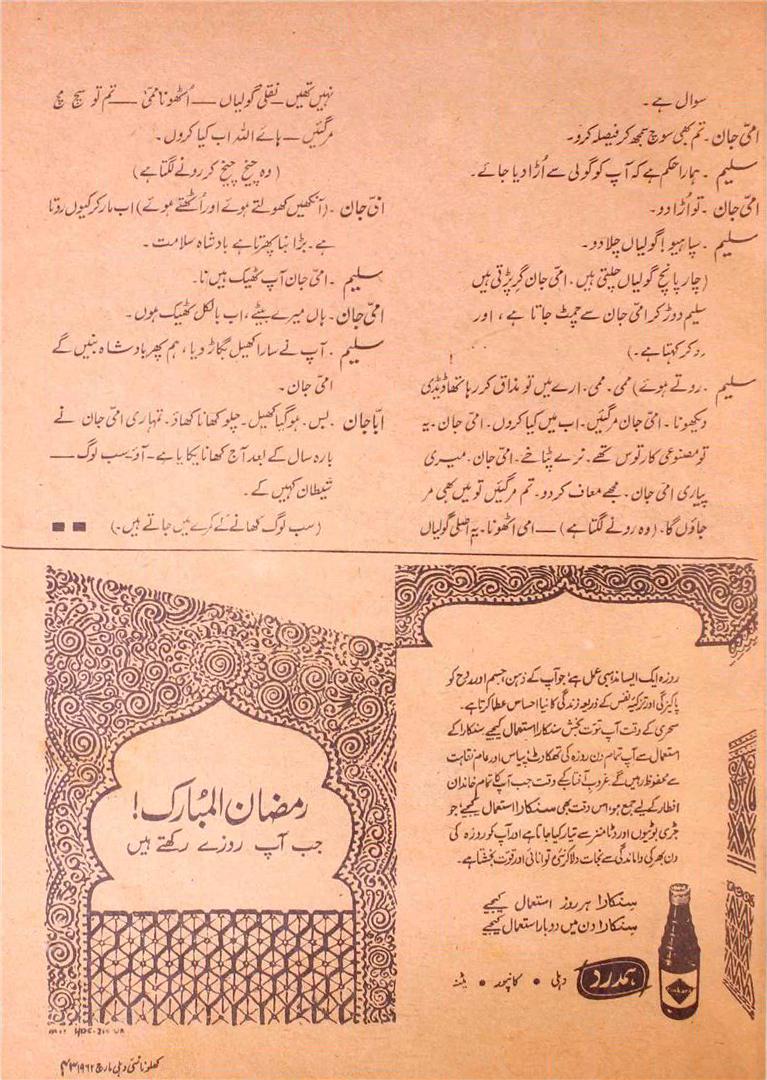 سوال ہے۔
امّی جان ۔ تم بھی سوچ سمجھ کر فیصلہ کرو۔
سلیم ۔ ہمارا حکم ہے کہ آپ کو گولی سے اُڑا دیا جائے۔
امّی جان ۔ تو اُڑا دو۔
سلیم ۔ سپاہیو! گولیاں چلا دو۔
(چار پانچ گولیاں چلتی ہیں، امّی جان گر پڑتی ہیں
سلیم دوڑ کر امّی جان سے چمٹ جاتا ہے، اور
رو کر کہتا ہے۔)
سلیم ۔ روتے ہوئے) ممی۔ ممی۔ ارے میں تو مذاق کر رہا تھا ڈیڈی
دیکھو نا ۔ امّی جان مر گئیں۔ اب میں کیا کروں۔ امّی جان۔ یہ
تو مصنوعی کارتوس تھے۔ نرے پٹاخے۔ امّی جان۔ میری
پیاری امّی جان ۔ مجھے معاف کر دو۔ تم مر گئیں تو میں بھی مر
جاؤں گا۔ (وہ رونے لگتا ہے) — امی اٹھو نا۔ یہ اصلی گولیاں
نہیں تھیں۔ نقلی گولیاں — اُٹھو نا ممّی — تم تو سچ مچ
مر گئیں — ہائے اللہ اب کیا کروں۔
(وہ چیخ چیخ کر رونے لگتا ہے)
امّی جان ۔ (آنکھیں کھولتے ہوئے اور اُٹھتے ہوئے) اب مار کر کیوں روتا
ہے۔ بڑا بنا پھرتا ہے بادشاہ سلامت۔
سلیم ۔ امّی جان آپ ٹھیک ہیں نا۔
امّی جان۔ ہاں میرے بیٹے، اب بالکل ٹھیک ہوں۔
سلیم ۔ آپ نے سارا کھیل بگاڑ دیا، ہم پھر بادشاہ بنیں گے
امّی جان۔
ابّا جان ۔ بس۔ ہو گیا کھیل۔ چلو کھانا کھاؤ۔ تمہاری امّی جان نے
بارہ سال کے بعد آج کھانا پکایا ہے۔ آؤ سب لوگ —
شیطان کہیں کے۔
(سب لوگ کھانے کے کمرے میں جاتے ہیں۔)
روزہ ایک ایسا مذہبی عمل ہے جو آپ کے ذہن جسم اور روح کو
پاکیزگی اور تزکیۂ نفس کے ذریعہ زندگی کا نیا احساس عطا کرتا ہے۔
سحری کے وقت آپ قوت بخش سنکارا استعمال کیجیے سنکارا کے
استعمال سے آپ تمام دن روزہ کی تھکاوٹ، پیاس اور عام نقاہت
سے محفوظ رہیں گے غروب آفتاب کے وقت جب آپ کا تمام خاندان
افطار کے لیے جمع ہو، اس وقت بھی سنکارا استعمال کیجیے جو
جڑی بوٹیوں اور وٹامنز سے تیار کیا جاتا ہے اور آپ کو روزہ کی
دن بھر کی واماندگی سے نجات دلا کر نئی توانائی اور قوت بخشتا ہے۔
سنکارا ہر روز استعمال کیجیے
سنکارا دن میں دو بار استعمال کیجیے
ہمدرد دہلی • کانپور • پٹنہ
رمضان المبارک!
جب آپ روزے رکھتے ہیں
کھلونا نئی دہلی مارچ ۱۹۶۲ ۴۳